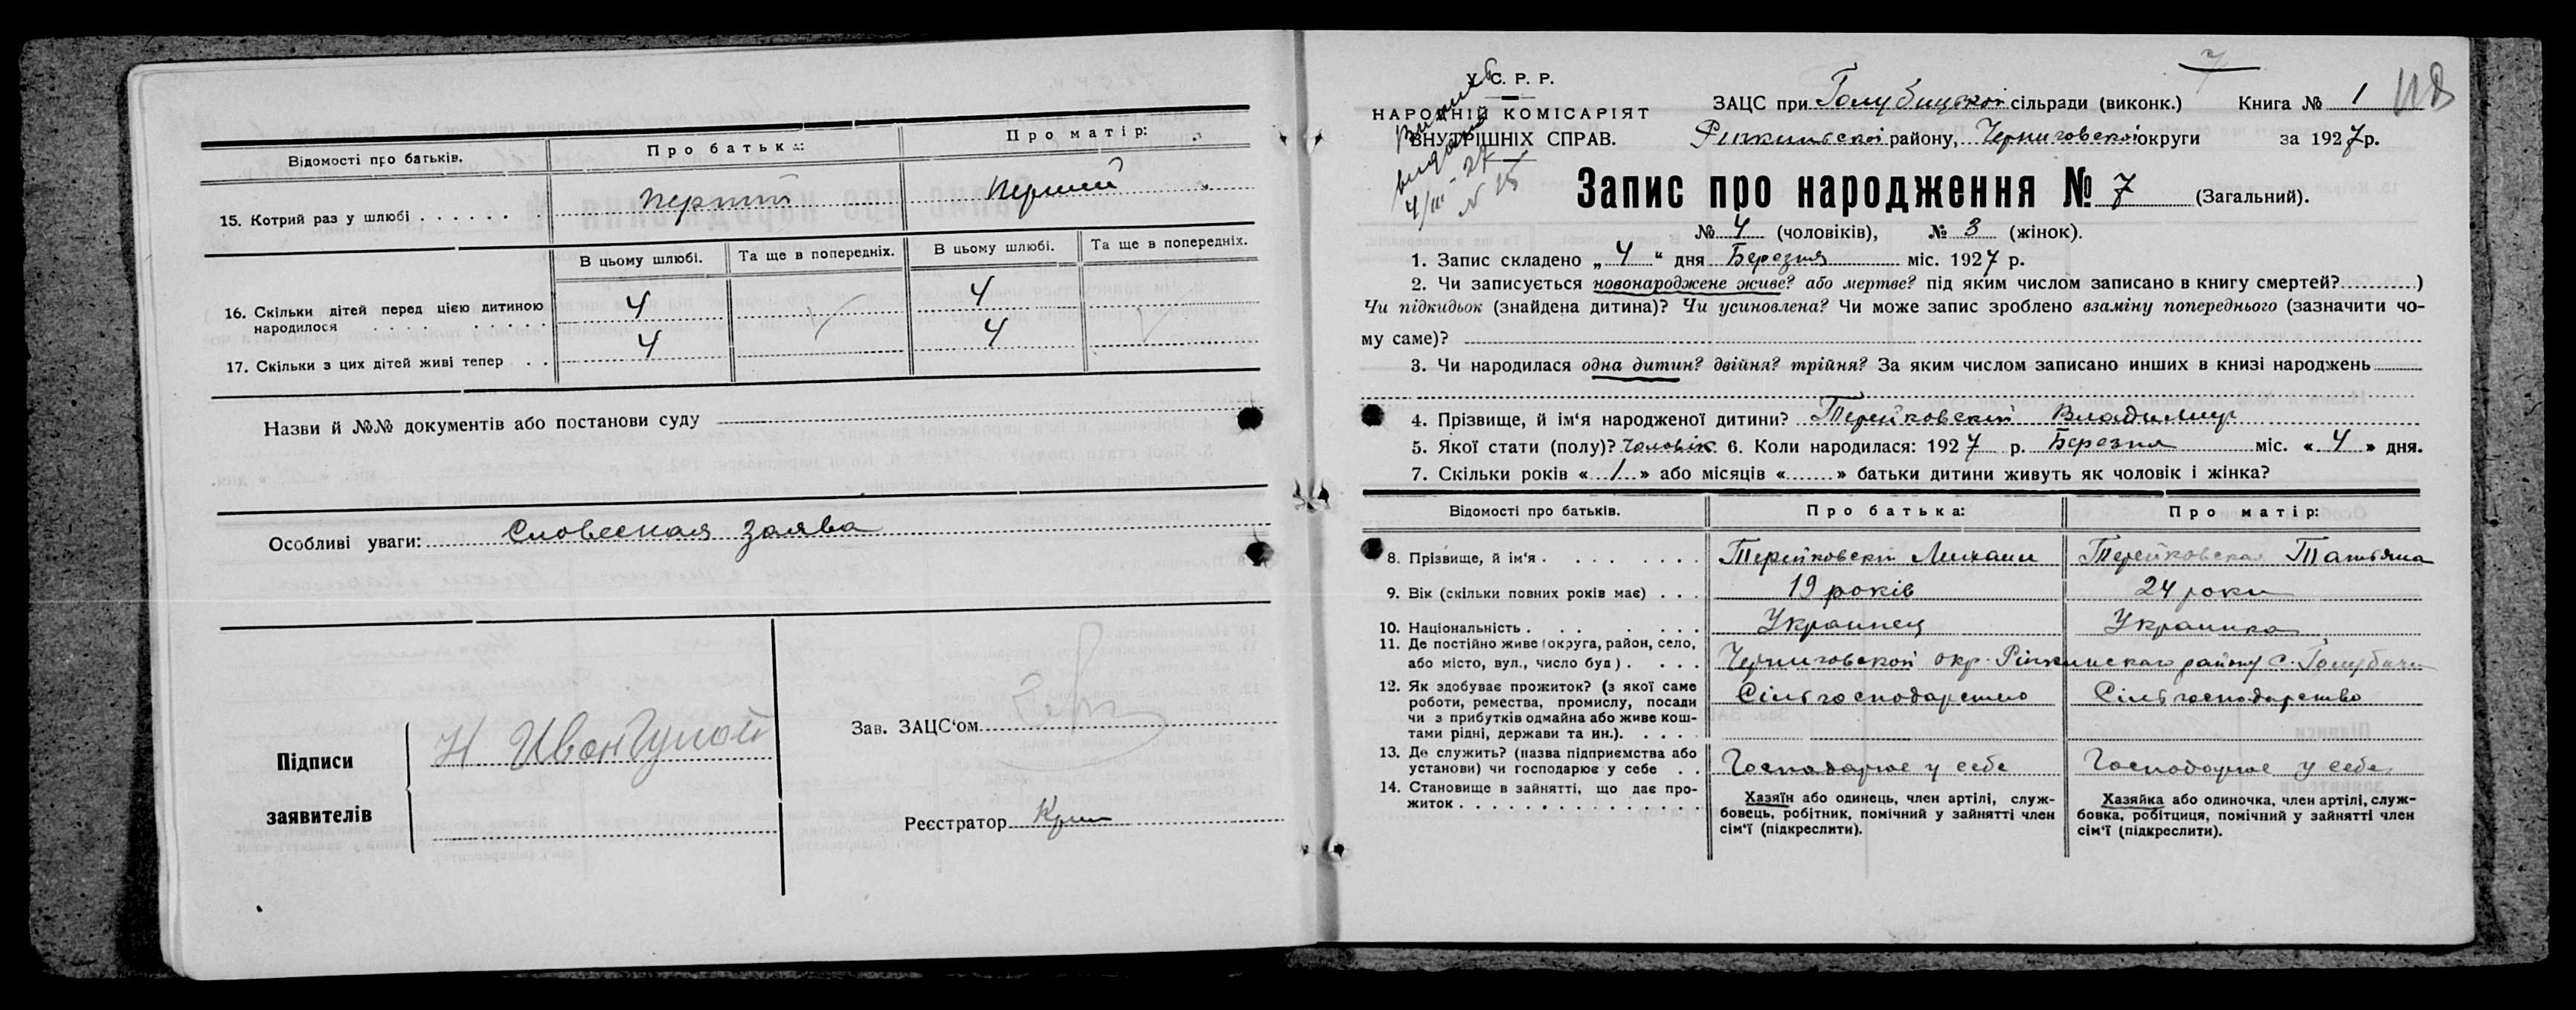 Відомості про батьків. Про батька: Про матір:
15. Котрий раз у шлюбі . . . . . . . перший перший
В цьому шлюбі. Та ще в попередніх. В цьому шлюбі. Та ще в попередніх.
16. Скільки дітей перед цією дитиною
народилося . . . . . . . . . 4 4
17. Скільки з цих дітей живі тепер . . 4 4
Назви й №№ документів або постанови суду
Особливі уваги: Словесная заява
Підписи
заявителів
Н Иван Гупой
Зав. ЗАЦС'ом
Реєстратор
7
У. С. Р. Р.
НАРОДНІЙ КОМІСАРІЯТ
ВНУТРІШНІХ СПРАВ.
4/III - 27
ЗАЦС при Голубицької сільради (виконк.) Книга № 1
Ріпкинської району, Черниговської округи за 1927 р.
Запис про народження № 7 (Загальний).
№ 4 (чоловіків), № 3 (жінок).
1. Запис складено „ 4 “ дня Березня міс. 1927 р.
2. Чи записується новонароджене живе? або мертве? під яким числом записано в книгу смертей?..........)
Чи підкидьок (знайдена дитина)? Чи усиновлена? Чи може запис зроблено взаміну попереднього (зазначити чо-
му саме)?
3. Чи народилася одна дитин? двійня? трійня? За яким числом записано инших в книзі народжень
4. Прізвище, й ім'я народженої дитини? Терейковский Владимир
5. Якої стати (полу)? чоловік 6. Коли народилася: 1927 р. Березня міс. « 4 » дня.
7. Скільки років « 1 » або місяців «.......» батьки дитини живуть як чоловік і жінка?
Відомості про батьків. Про батька: Про матір:
8. Прізвище, й ім'я . . . . . . . Терейковский Михаил Терейковская Татьяна
9. Вік (скільки повних років має) . . . 19 років 24 роки
10. Національність . . . . . . . Украинец Украинка
11. Де постійно живе (округа, район, село,
або місто, вул., число буд.) . . . . Черниговской окр. Ріпкинскаго району с. Голубичи
12. Як здобуває прожиток? (з якої саме Сільгосподарство Сільгосподарство
роботи, ремества, промислу, посади
чи з прибутків одмайна або живе кош-
тами рідні, держави та ин.). . . . .
13. Де служить? (назва підприємства або
установи) чи господарює у себе . . Господарює у себе Господарює у себе
14. Становище в зайнятті, що дає про-
житок . . . . . . . . . . . . . . .
Хазяїн або одинець, член артілі, служ-
бовець, робітник, помічний у зайнятті член
сім'ї (підкреслити).
Хазяйка або одиночка, член артілі, служ-
бовка, робітциця, помічний у зайнятті член
сім'ї (підкреслити).